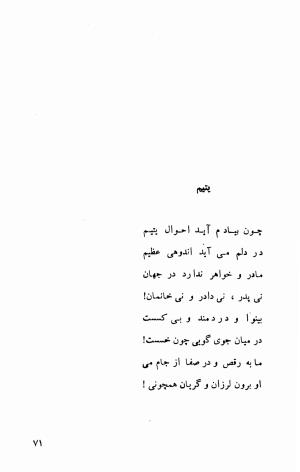 یتیم
چون بیادم آید احوال یتیم
در دلم می آید اندوهی عظیم
مادر و خواهر ندارد در جهان
نی پدر ، نی دادر و نی خانمان!
بینوا و دردمند و بی کست
در میان جوی گویی چون خست!
ما به رقص و در صفا از جام می
او برون لرزان و گریان همچونی !
۷۱